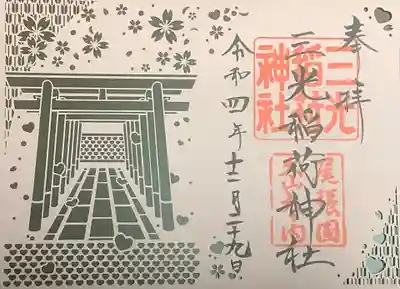 奉拝
三光稲荷神社
三光
稲荷
神社
尾張国
犬山城内
令和四年十二月二十九日